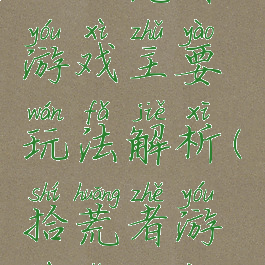 yóu xì zhǔ yào
游戏主要
wán fǎ jiě xī
玩法解析(
shí huāng zhě yóu
拾荒者游